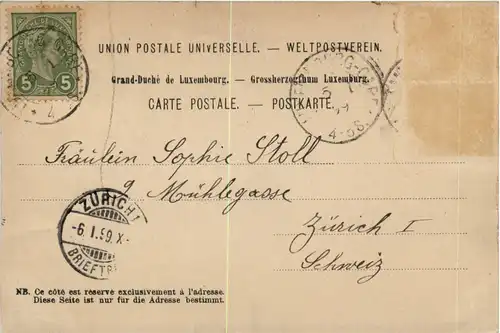 UNION POSTALE UNIVERSELLE. — WELTPOSTVEREIN.
Grand-Duché de Luxembourg. — Grossherzogthum Luxemburg.
CARTE POSTALE. — POSTKARTE.
5 5
5 1
99
4-5S.
Fräulein Sophie Stoll
9 Mühlegasse
Zürich I
Schweiz
ZÜRICH 1
-6.I.99.X-
NB. Ce côté est reservé exclusivement à l'adresse.
Diese Seite ist nur für die Adresse bestimmt.